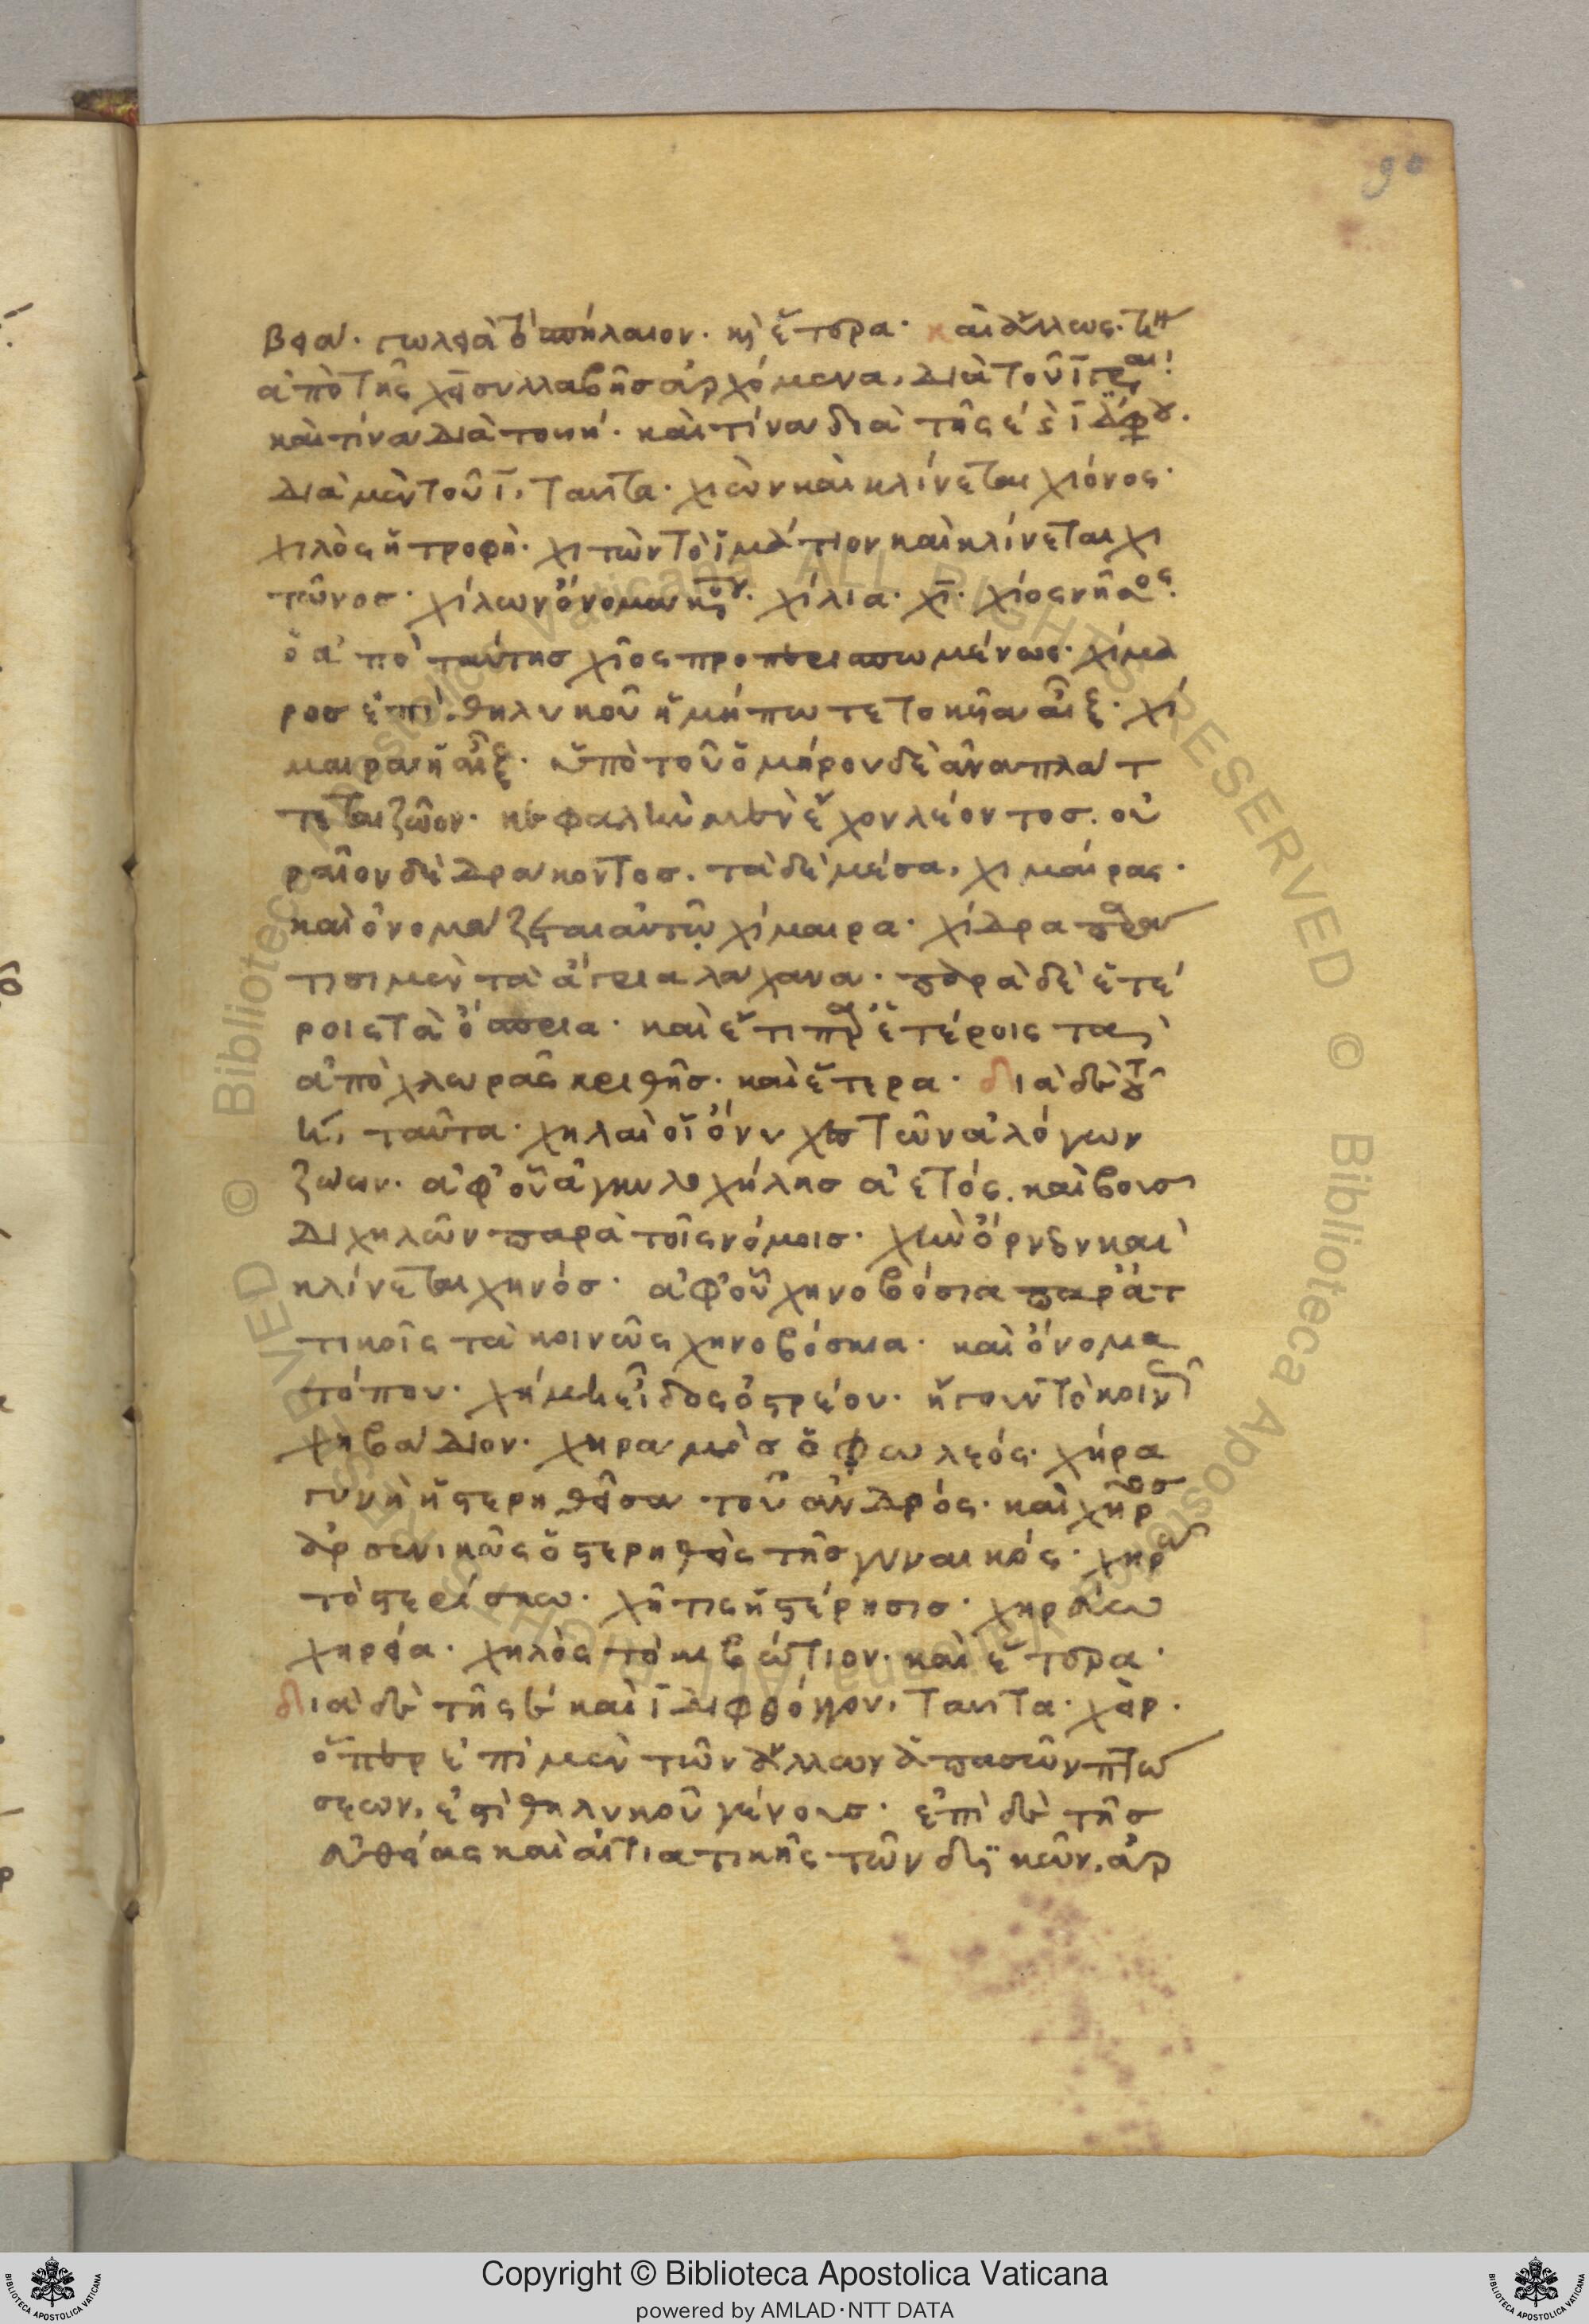 90
βεία· γωλειὰ τὸ σπήλαιον· κ(αὶ) ἕτερα· καὶ ἄλλως· τινὰ
ἀπὸ τῆς χι συλλαβῆς ἀρχόμενα, διὰ τοῦ ῑ γράφεται·
καὶ τίνα διὰ τοῦ η· καὶ τίνα διὰ τῆς ε κ(αὶ) ῑ διφθόγγου.
διὰ μὲν τοῦ ῑ, ταῦτα· χιὼν καὶ κλίνεται χιόνος·
χιλὸς ἡ τροφή· χιτὼν τὸ ἱμάτιον καὶ κλίνεται χι
τῶνος· χίλων ὄνομα κύριον· χίλια· χῑ· χίος νῆσος·
ὁ ἀπὸ ταύτης χῖος προπερισπωμένως· χίμα
ρος ἐπὶ θηλυκοῦ ἡ μήπω τετοκῆα αἲξ· χί
μαιρα ἡ αἲξ· ὑπὸ τοῦ ὁμήρου δὲ ἀναπλάτ
τεται ζῶον· κεφαλὴν μὲν ἔχον λέοντος. οὐ
ραῖον δὲ δράκοντος. τὰ δὲ μέσα, χιμαίρας·
καὶ ὀνομάζεται αὐτῶ χίμαιρα· χίδρα παρά
τισι μὲν τὰ ἄγρια λάχανα· παρὰ δὲ ἑτέ
ροις τὰ ὄσπρια· καὶ ἔτι παρ' ἑτέροις τὰ
ἀπὸ χλωρᾶς κριθῆς· καὶ ἕτερα· διὰ δὲ τοῦ
η, ταῦτα· χηλαὶ οἱ ὄνυχες τῶν ἀλόγων
ζώων· ἀφ' οὗ ἀγκυλοχήλης ἀετός. καὶ βοῦς
διχηλῶν παρὰ τοῖς νόμοις· χὴν ὄρνεον καὶ
κλίνεται χηνός· ἀφ' οὗ χηνοβόσια παρ' ἀτ
τικοῖς τὰ κοινῶς χηνοβόσκια· καὶ ὄνομα
τόπου· χήμη εἶδος ὀστρέου· ἤγουν τὸ κοινῶς
χηβάδιον· χηραμὸς ὁ φωλεός· χήρα
γυνὴ ἡ στερηθεῖσα τοῦ ἀνδρός· καὶ χῆρος
ἀρσενικῶς ὁ στερηθεὶς τῆς γυναικός· χηρῶ
τὸ στερίσκω· χῆτις ἡ στέρησις· χηράω
χηρεία· χηλὸς τὸ κιβώτιον· καὶ ἕτερα·
διὰ δὲ τῆς ε καὶ ῑ διφθόγγου, ταῦτα· χείρ.
ὅπερ ἐπὶ μὲν τῶν ἄλλων ἁπασῶν πτώ
σεων, ἐστὶ θηλυκοῦ γένους· ἐπὶ δὲ τῆς
εὐθείας καὶ αἰτιατικῆς τῶν δυϊκῶν, ἀρ
Copyright © Biblioteca Apostolica Vaticana
powered by AMLAD·NTT DATA